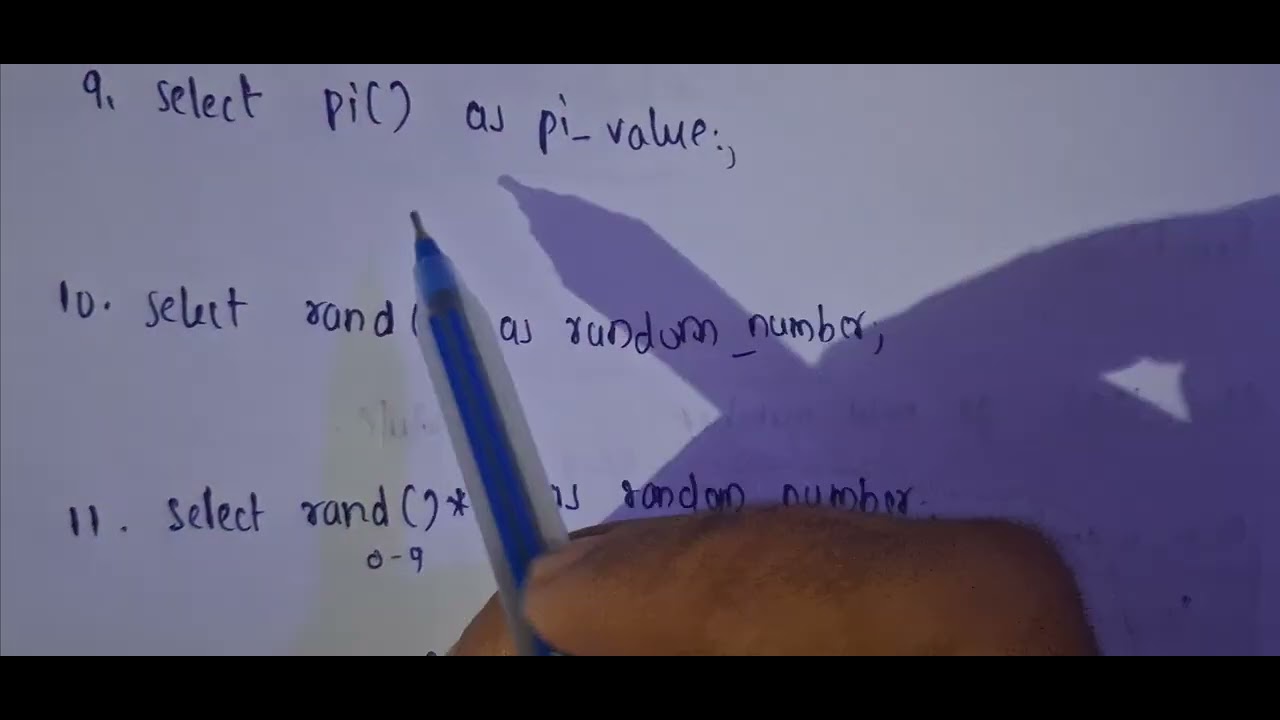 9. select pi() as pi_value;
10. select rand( as random_number;
11. select rand()* as random number
0-9